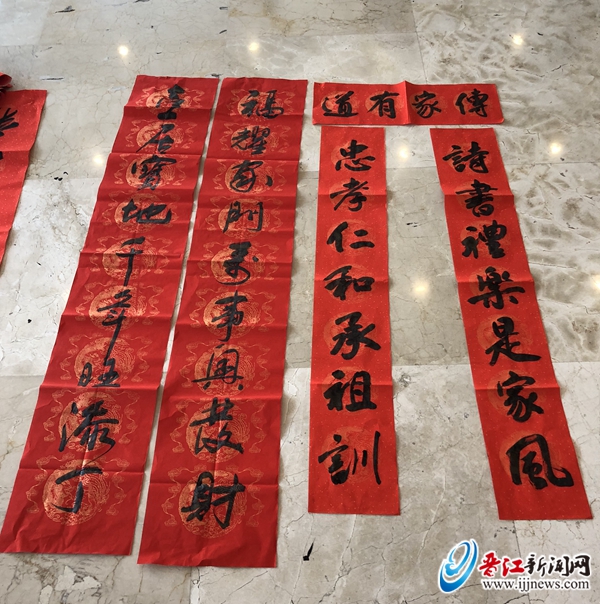 傳家有道
詩書禮樂是家風
忠孝仁和承祖訓
福耀家門萬事興發財
居寶地千年旺添丁
晋江新闻网
www.ijjnews.com